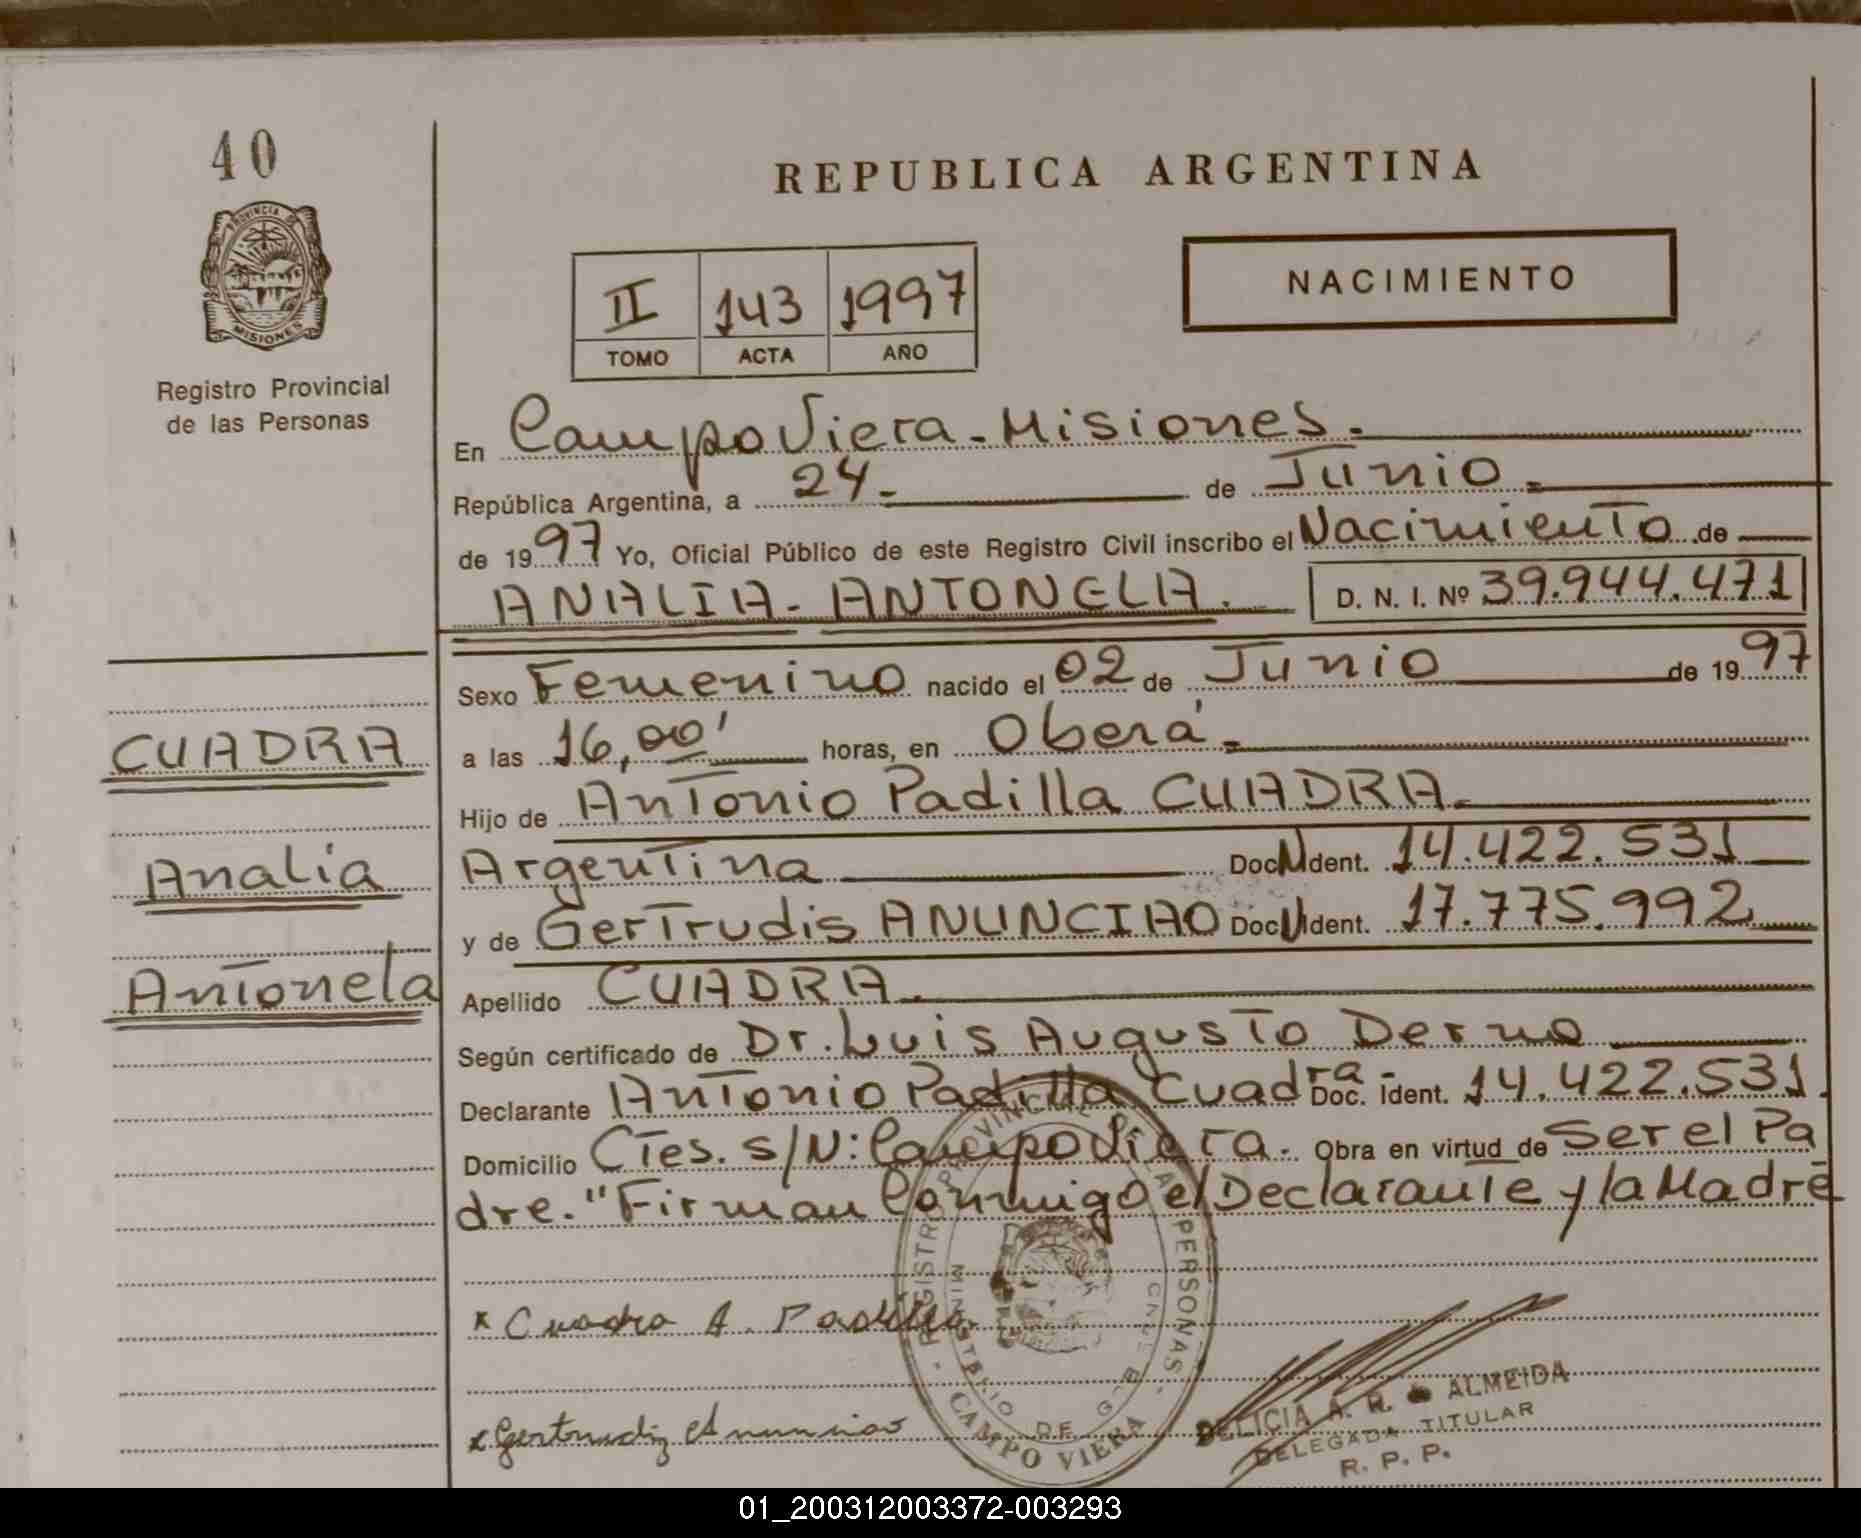 40
REPUBLICA ARGENTINA
PROVINCIA DE
MISIONES
Registro Provincial
de las Personas
II 143 1997
TOMO ACTA AÑO
NACIMIENTO
En Campo Viera - Misiones.
República Argentina, a 24 - de Junio
de 1997 Yo, Oficial Público de este Registro Civil inscribo el Nacimiento de
ANALIA - ANTONELA. D. N. I. Nº 39.944.471
Sexo Femenino nacido el 02 de Junio de 1997
a las 16,00' horas, en Oberá
Hijo de Antonio Padilla CUADRA
Argentina Doc. N Ident. 14.422.531
y de Gertrudis ANUNCIAO Doc. N Ident. 17.775.992
Apellido CUADRA.
Según certificado de Dr. Luis Augusto Derno
Declarante Antonio Padilla Cuadra Doc. Ident. 14.422.531.
Domicilio Ctes. s/N: Campo Viera. Obra en virtud de Ser el Pa
dre. "Firman Conmigo el Declarante y la Madre
CUADRA
Analia
Antonela
x Cuadra A. Padilla
x Gertrudiz Anunciao
REGISTRO PROVINCIAL DE LAS PERSONAS
MINISTERIO DE GOB
CAMPO VIERA
DELICIA A. R. de ALMEIDA
DELEGADA TITULAR
R. P. P.
01_200312003372-003293